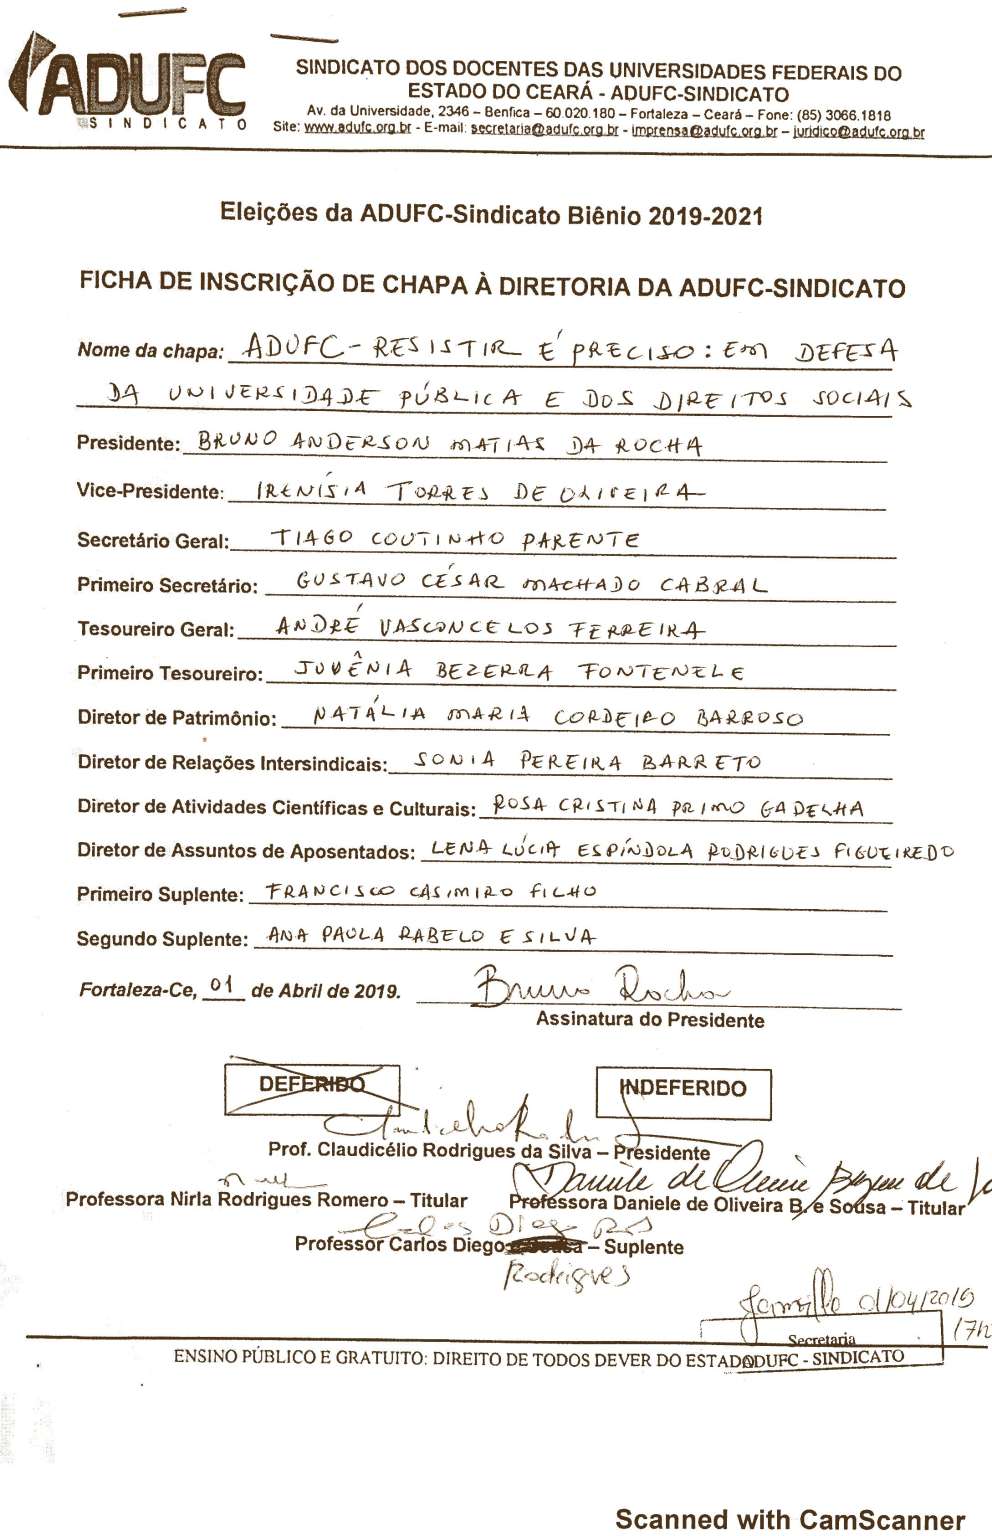 ADUFC
SINDICATO
SINDICATO DOS DOCENTES DAS UNIVERSIDADES FEDERAIS DO
ESTADO DO CEARÁ - ADUFC-SINDICATO
Av. da Universidade, 2346 – Benfica – 60.020.180 – Fortaleza – Ceará – Fone: (85) 3066.1818
Site: www.adufc.org.br - E-mail: secretaria@adufc.org.br - imprensa@adufc.org.br – juridico@adufc.org.br
Eleições da ADUFC-Sindicato Biênio 2019-2021
FICHA DE INSCRIÇÃO DE CHAPA À DIRETORIA DA ADUFC-SINDICATO
Nome da chapa: ADUFC - RESISTIR É PRECISO: EM DEFESA
DA UNIVERSIDADE PÚBLICA E DOS DIREITOS SOCIAIS
Presidente: BRUNO ANDERSON MATIAS DA ROCHA
Vice-Presidente: IRENÍSIA TORRES DE OLIVEIRA
Secretário Geral: TIAGO COUTINHO PARENTE
Primeiro Secretário: GUSTAVO CÉSAR MACHADO CABRAL
Tesoureiro Geral: ANDRÉ VASCONCELOS FERREIRA
Primeiro Tesoureiro: JUVÊNIA BEZERRA FONTENELE
Diretor de Patrimônio: NATÁLIA MARIA CORDEIRO BARROSO
Diretor de Relações Intersindicais: SONIA PEREIRA BARRETO
Diretor de Atividades Científicas e Culturais: ROSA CRISTINA PRIMO GADELHA
Diretor de Assuntos de Aposentados: LENA LÚCIA ESPÍNDOLA RODRIGUES FIGUEIREDO
Primeiro Suplente: FRANCISCO CASIMIRO FILHO
Segundo Suplente: ANA PAULA RABELO E SILVA
Fortaleza-Ce, 01 de Abril de 2019. Bruno Rocha
Assinatura do Presidente
DEFERIDO INDEFERIDO
Prof. Claudicélio Rodrigues da Silva – Presidente
Daniele de Oliveira Bezerra de
Professora Nirla Rodrigues Romero – Titular Professora Daniele de Oliveira B. e Sousa – Titular
Carlos Diego
Professor Carlos Diego – Suplente
Rodrigues
01/04/2019
17h
Secretaria
ENSINO PÚBLICO E GRATUITO: DIREITO DE TODOS DEVER DO ESTADO
ADUFC - SINDICATO
Scanned with CamScanner